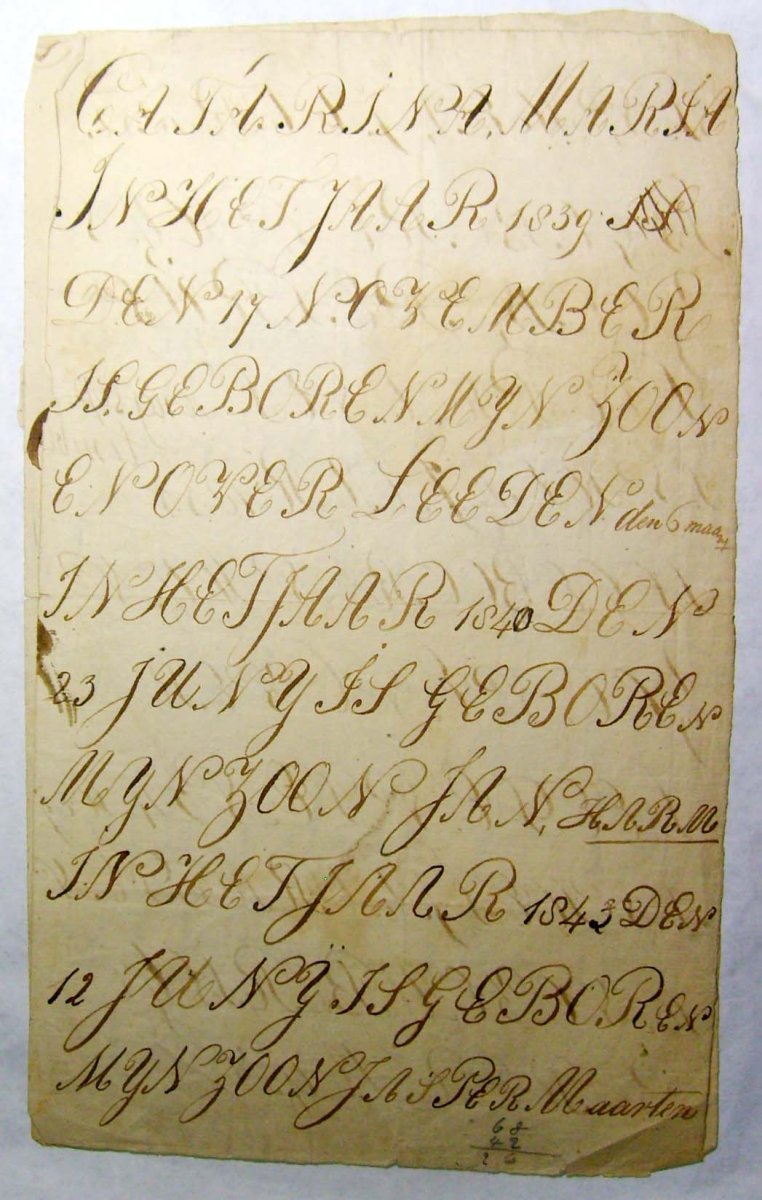 CATARINA. MARIA
IN HET JAAR 1839
DEN 17 NOVEMBER
IS. GEBOREN MYN ZOON
EN OVER LEEDEN den 6 maart
IN HET JAAR 1840 DEN
23 JUNY IS GEBOREN
MYN ZOON JAN. HARM
IN HET JAAR 1843 DEN
12 JUNŸ IS GEBOREN
MYN ZOON JASPER Maarten
68
42
26